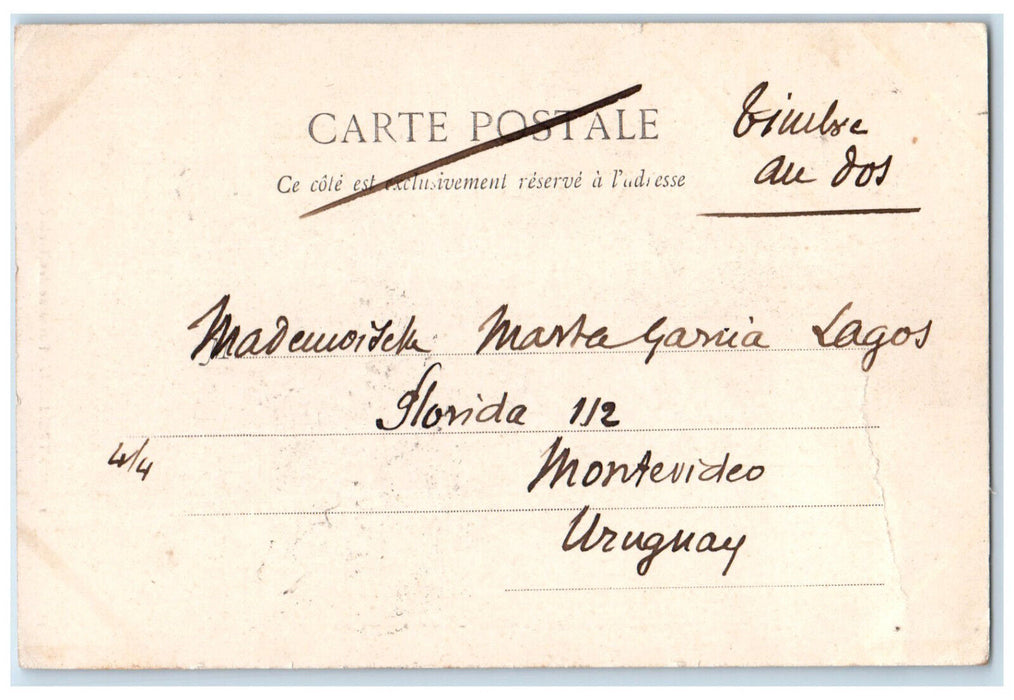 CARTE POSTALE
Ce côté est exclusivement réservé à l'adresse
Timbre
au dos
Mademoiselle Marta Garcia Lagos
Florida 112
4/4
Montevideo
Uruguay